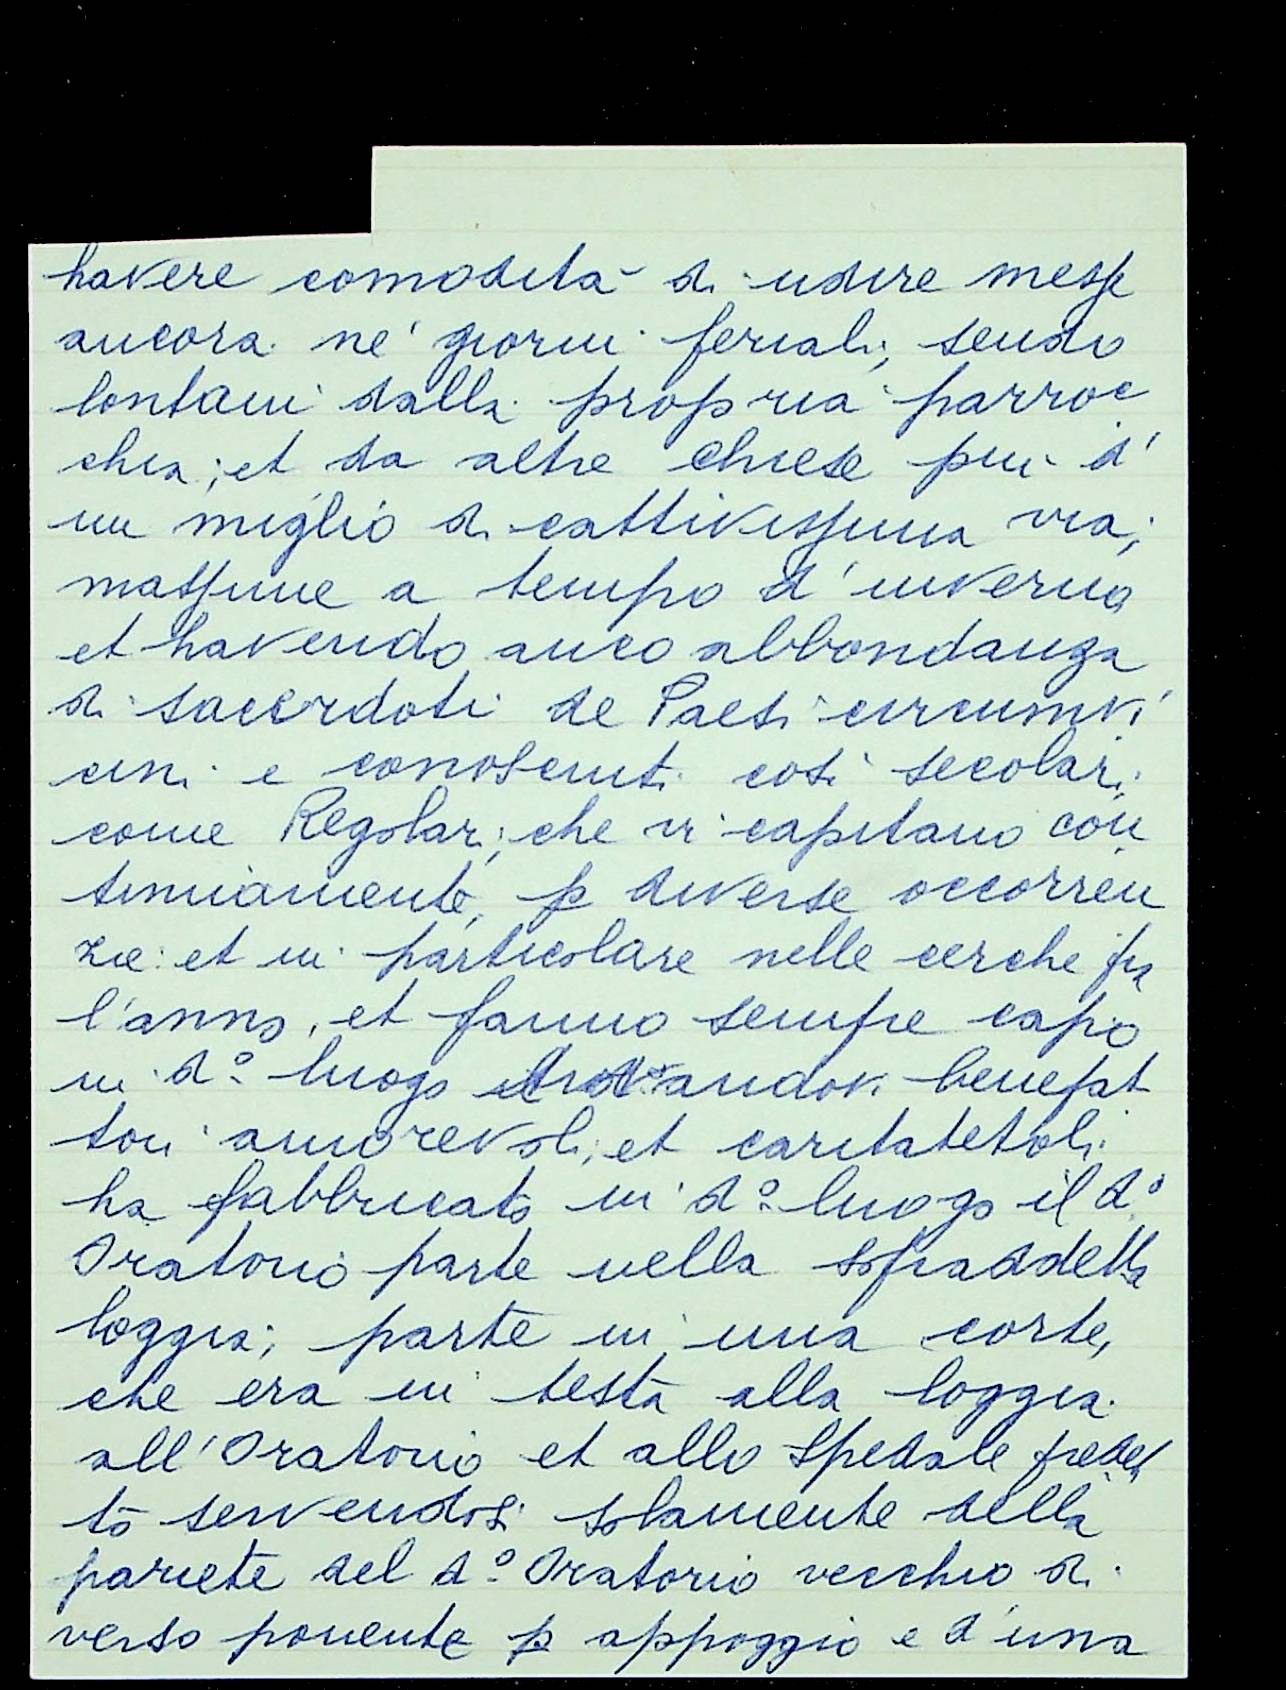 havere comodità di udire messe
ancora ne' giorni feriali, sendo
lontani dalla propria parroc
chia; et da altre chiese più d'
un miglio di cattivissima via;
massime a tempo d'inverno
et havendo anco abbondanza
di sacerdoti de Paesi circumvi
cini e conosciuti così secolari
come Regolari, che vi capitano con
tinuamente, p diverse occorren
ze: et in particolare nelle cerche fra
l'anno, et fanno sempre capo
in d.º luogo trovandovi benefat
tori amorevoli, et caritatevoli
ha fabbricato in d.º luogo il d.º
Oratorio parte nella sopraddetta
loggia; parte in una corte,
che era in testa alla loggia
all'Oratorio et allo Spedale predet
to servendosi solamente della
pariete del d.º Oratorio vecchio di
verso ponente p appoggio e d'una